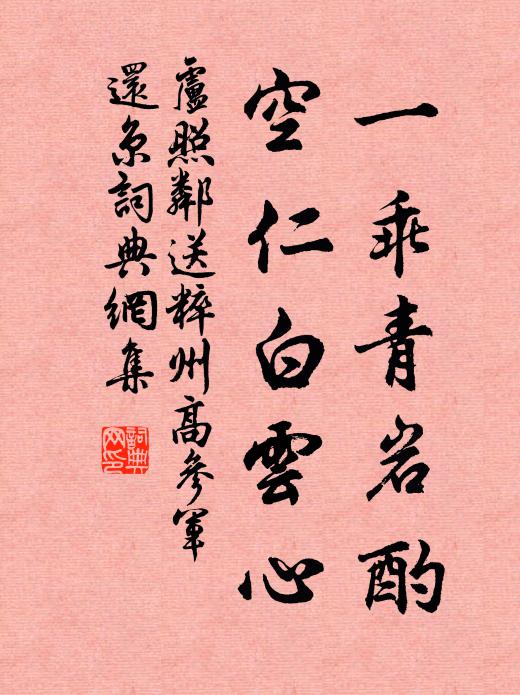 一乖青岩酌
空仁白雲心
盧照鄰送粹州高參軍
還京詞典網集
詞典
网印